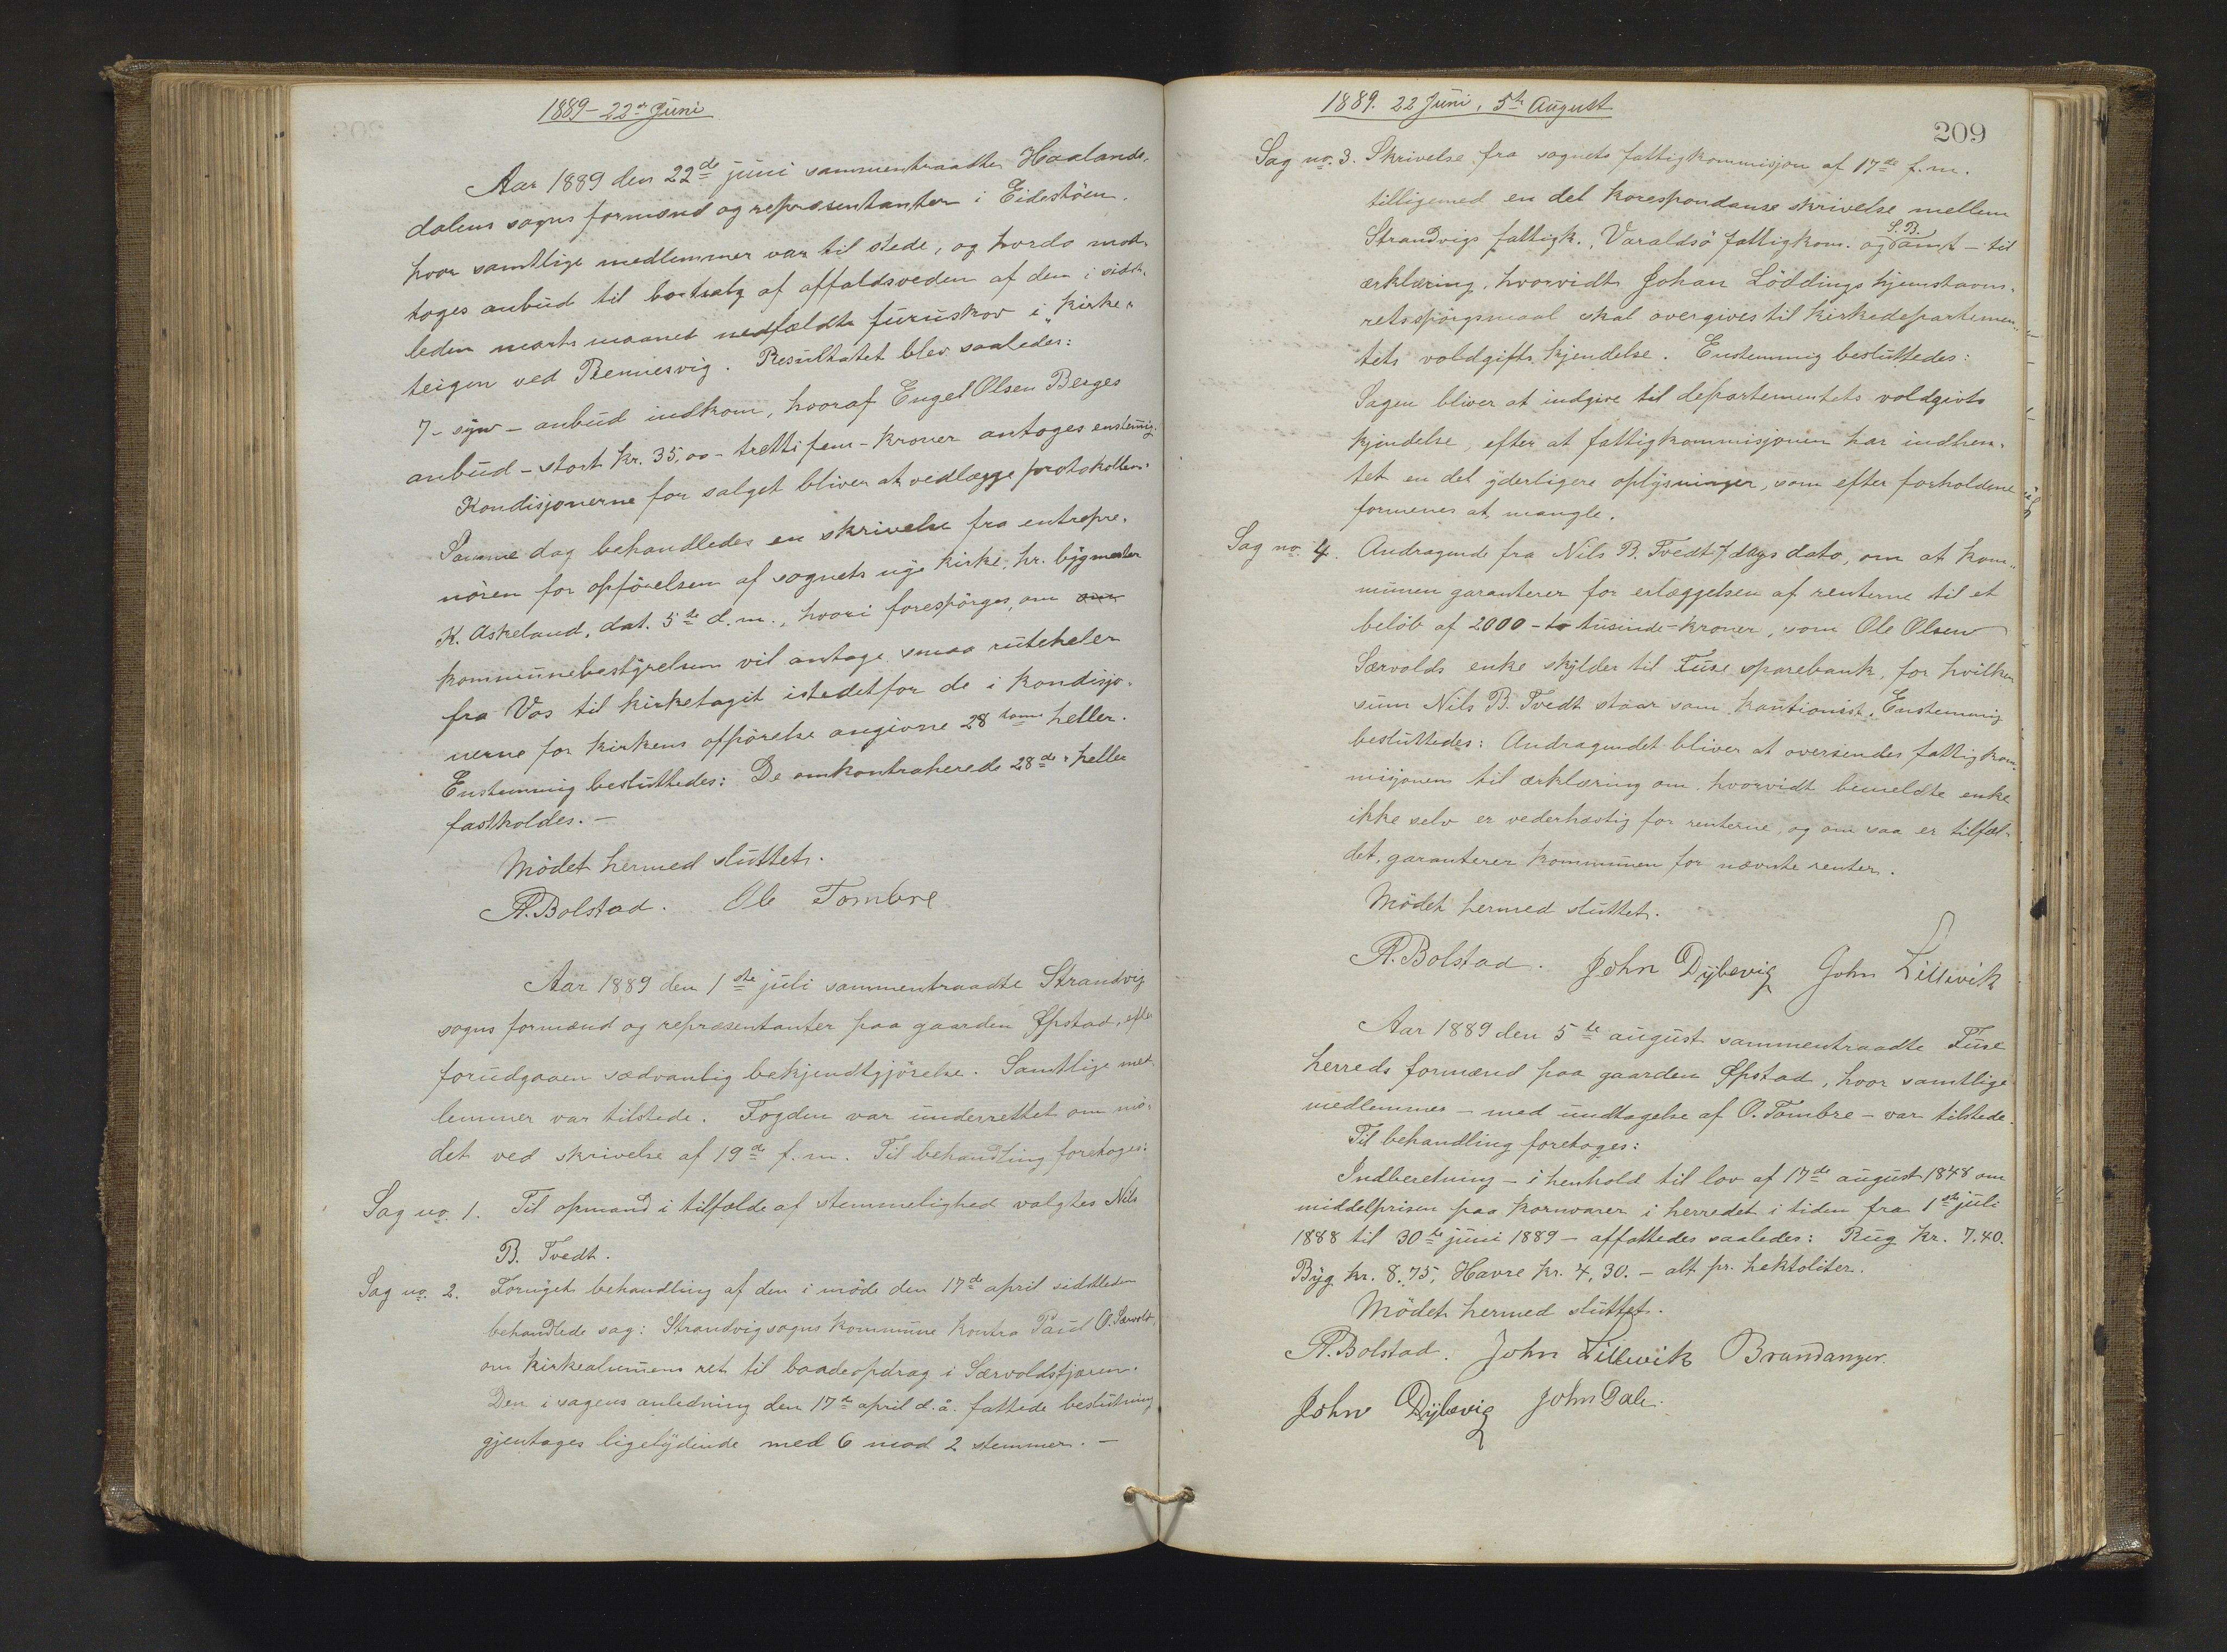 1889 - 22de Juni
Aar 1889 den 22de juni sammentraadte Haalands-
dalens sogns formænd og repræsentanter i Eidestöen,
hvor samtlige medlemmer var til stede, og hvorda mod-
toges anbud til bortsalg af affaldsveden af den i sidst-
leden marts maaned nedfældte furuskov i "kirke-
teigen ved Rennesvig. Resultatet blev saaledes:
7 - syv - anbud indkom, hvoraf Engel Olsen Berges
anbud - stort kr. 35,00 - tretti fem - kroner antoges enstemig.
Kondisjonerne for salget bliver at vedlægge protokollen.
Samme dag behandledes en skrivelse fra entrepre-
nören for opförelsen af sognets nye kirke, hr. bygmester
K. Askeland, dat. 5te d.m., hvori forespörges, om om
kommunebestyrelsen vil antage smaa rüteheler
fra Vos til kirketaget istedetfor de i kondisjo-
nerne for kirkens opförelse angivne 28 toms heller.
Enstemmig besluttedes: De omkontraherede 28de" heller
fastholdes. -
Mödet hermed sluttet.
A. Bolstad. Ole Tombre
Aar 1889 den 1ste juli sammentraadte Strandvig
sogns formænd og repræsentanter paa gaarden Øpstad, efter
forudgaaen sædvanlig bekjendtgjörelse. Samtlige med-
lemmer var tilstede. Fogden var underrettet om mö-
det ved skrivelse af 19de f.m. Til behandling foretoges:
Sag no. 1. Til opmand i tilfælde af stemmelighed valgtes Nils
B. Tvedt.
Sag no. 2. Fornyet behandling af den i möde den 17de april sidstleden
behandlede sag: Strandvigsogns kommune kontra Paul O. Særvold,
om kirkealmuens ret til baadeopdrag i Særvoldsfjæren.
Den i sagens anledning den 17de april d.å. fattede beslutning
gjentages ligelydende med 6 mod 2 stemmer. -
1889. 22 Juni, 5te August
209
Sag no. 3. Skrivelse fra sognets fattigkommisjon af 17de f.m.
tilligemed en del korespondanse skrivelse mellem
Strandvigs fattigk., Varaldsö fattigkom. og S.B. amt - til
erklæring, hvorvidt Johan Löddings hjemstavns-
retsspörgsmaal skal overgives til kirkedepartemen-
tets voldgifts kjendelse. Enstemmig besluttedes:
Sagen bliver at indgive til departementets voldgivts
kjendelse, efter at fattigkommisjonen har indhen-
tet en del yderligere oplysninger, som efter forholdene
formenes at mangle.
Sag no. 4. Andragende fra Nils B. Tvedt, dags dato, om at kom-
munen garanterer for erlæggelsen af renterne til et
belöb af 2000 - to tusinde - kroner, som Ole Olsen
Særvolds enke skylder til Fuse sparebank, for hvilken
sum Nils B. Tvedt staar som kautionist. Enstemmig
besluttedes: Andragendet bliver at oversendes fattigkom-
misjonen til erklæring om, hvorvidt bemeldte enke
ikke selv er vederhæftig for renterne, og om saa er tilfæl-
det, garanterer kommunen for nævnte renter.
Mödet hermed sluttet.
A. Bolstad. John Dybevig John Lillevik
Aar 1889 den 5te august sammentraadte Fuse
herreds formænd paa gaarden Øpstad, hvor samtlige
medlemmer - med undtagelse af O. Tombre - var tilstede.
Til behandling foretoges:
Indberetning - i henhold til lov af 17de august 1848 om
middelprisen paa kornvarer i herredet i tiden fra 1ste juli
1888 til 30te juni 1889 - affattedes saaledes: Rug kr. 7,40.
Byg kr. 8,75, Havre kr. 4,30. - alt pr. hektoliter.
Mödet hermed sluttet.
A. Bolstad. John Lillevik Brandanger.
John Dybevig John Dale.